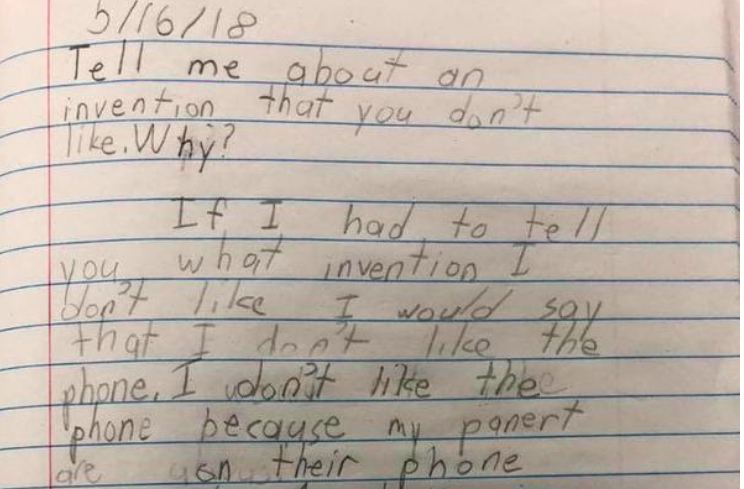 5/16/18
Tell me about an
invention that you don't
like. Why?
If I had to tell
you what invention I
don't like I would say
that I don't like the
phone. I don't like the
phone because my panert
are on their phone